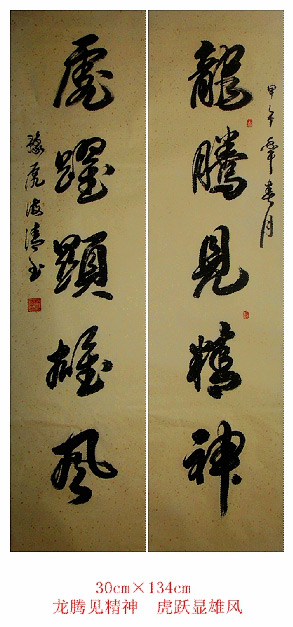 甲午年春月
龍騰見精神
虎躍顯雄風
30cm×134cm
龙腾见精神 虎跃显雄风